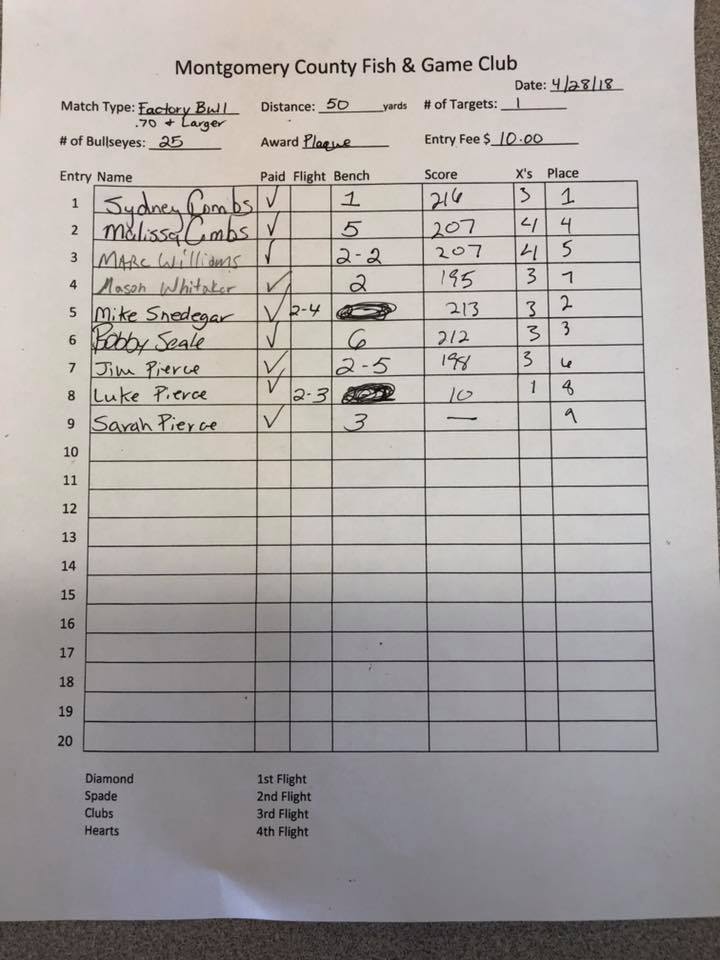 Montgomery County Fish & Game Club
Date: 4/28/18
Match Type: Factory Bull Distance: 50 yards # of Targets: 1
.70 + Larger
# of Bullseyes: 25 Award Plaque Entry Fee $ 10.00
Entry Name Paid Flight Bench Score X's Place
1 Sydney Combs ✓ 1 216 3 1
2 Malissa Combs ✓ 5 207 4 4
3 MARC Williams ✓ 2-2 207 4 5
4 Mason Whitaker ✓ 2 195 3 7
5 Mike Snedegar ✓ 2-4 213 3 2
6 Bobby Seale ✓ 6 212 3 3
7 Jim Pierce ✓ 2-5 198 3 6
8 Luke Pierce ✓ 2-3 10 1 8
9 Sarah Pierce ✓ 3 — 9
10
11
12
13
14
15
16
17
18
19
20
Diamond 1st Flight
Spade 2nd Flight
Clubs 3rd Flight
Hearts 4th Flight